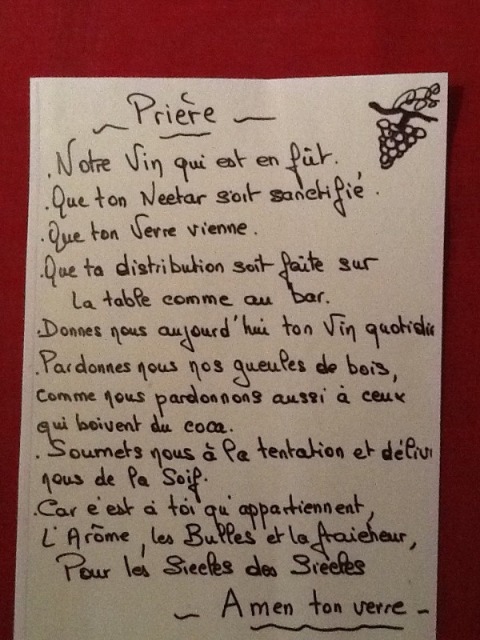 ~ Prière ~
. Notre Vin qui est en fût.
. Que ton Nectar soit sanctifié.
. Que ton Verre vienne.
. Que ta distribution soit faite sur
La table comme au bar.
. Donnes nous aujourd'hui ton Vin quotidie
. Pardonnes nous nos gueules de bois,
comme nous pardonnons aussi à ceux
qui boivent du coca.
. Soumets nous à la tentation et déliv
nous de la Soif.
. Car c'est à toi qu'appartiennent,
L'Arôme, les Bulles et la fraicheur,
Pour les Siecles des Siecles
~ Amen ton verre -